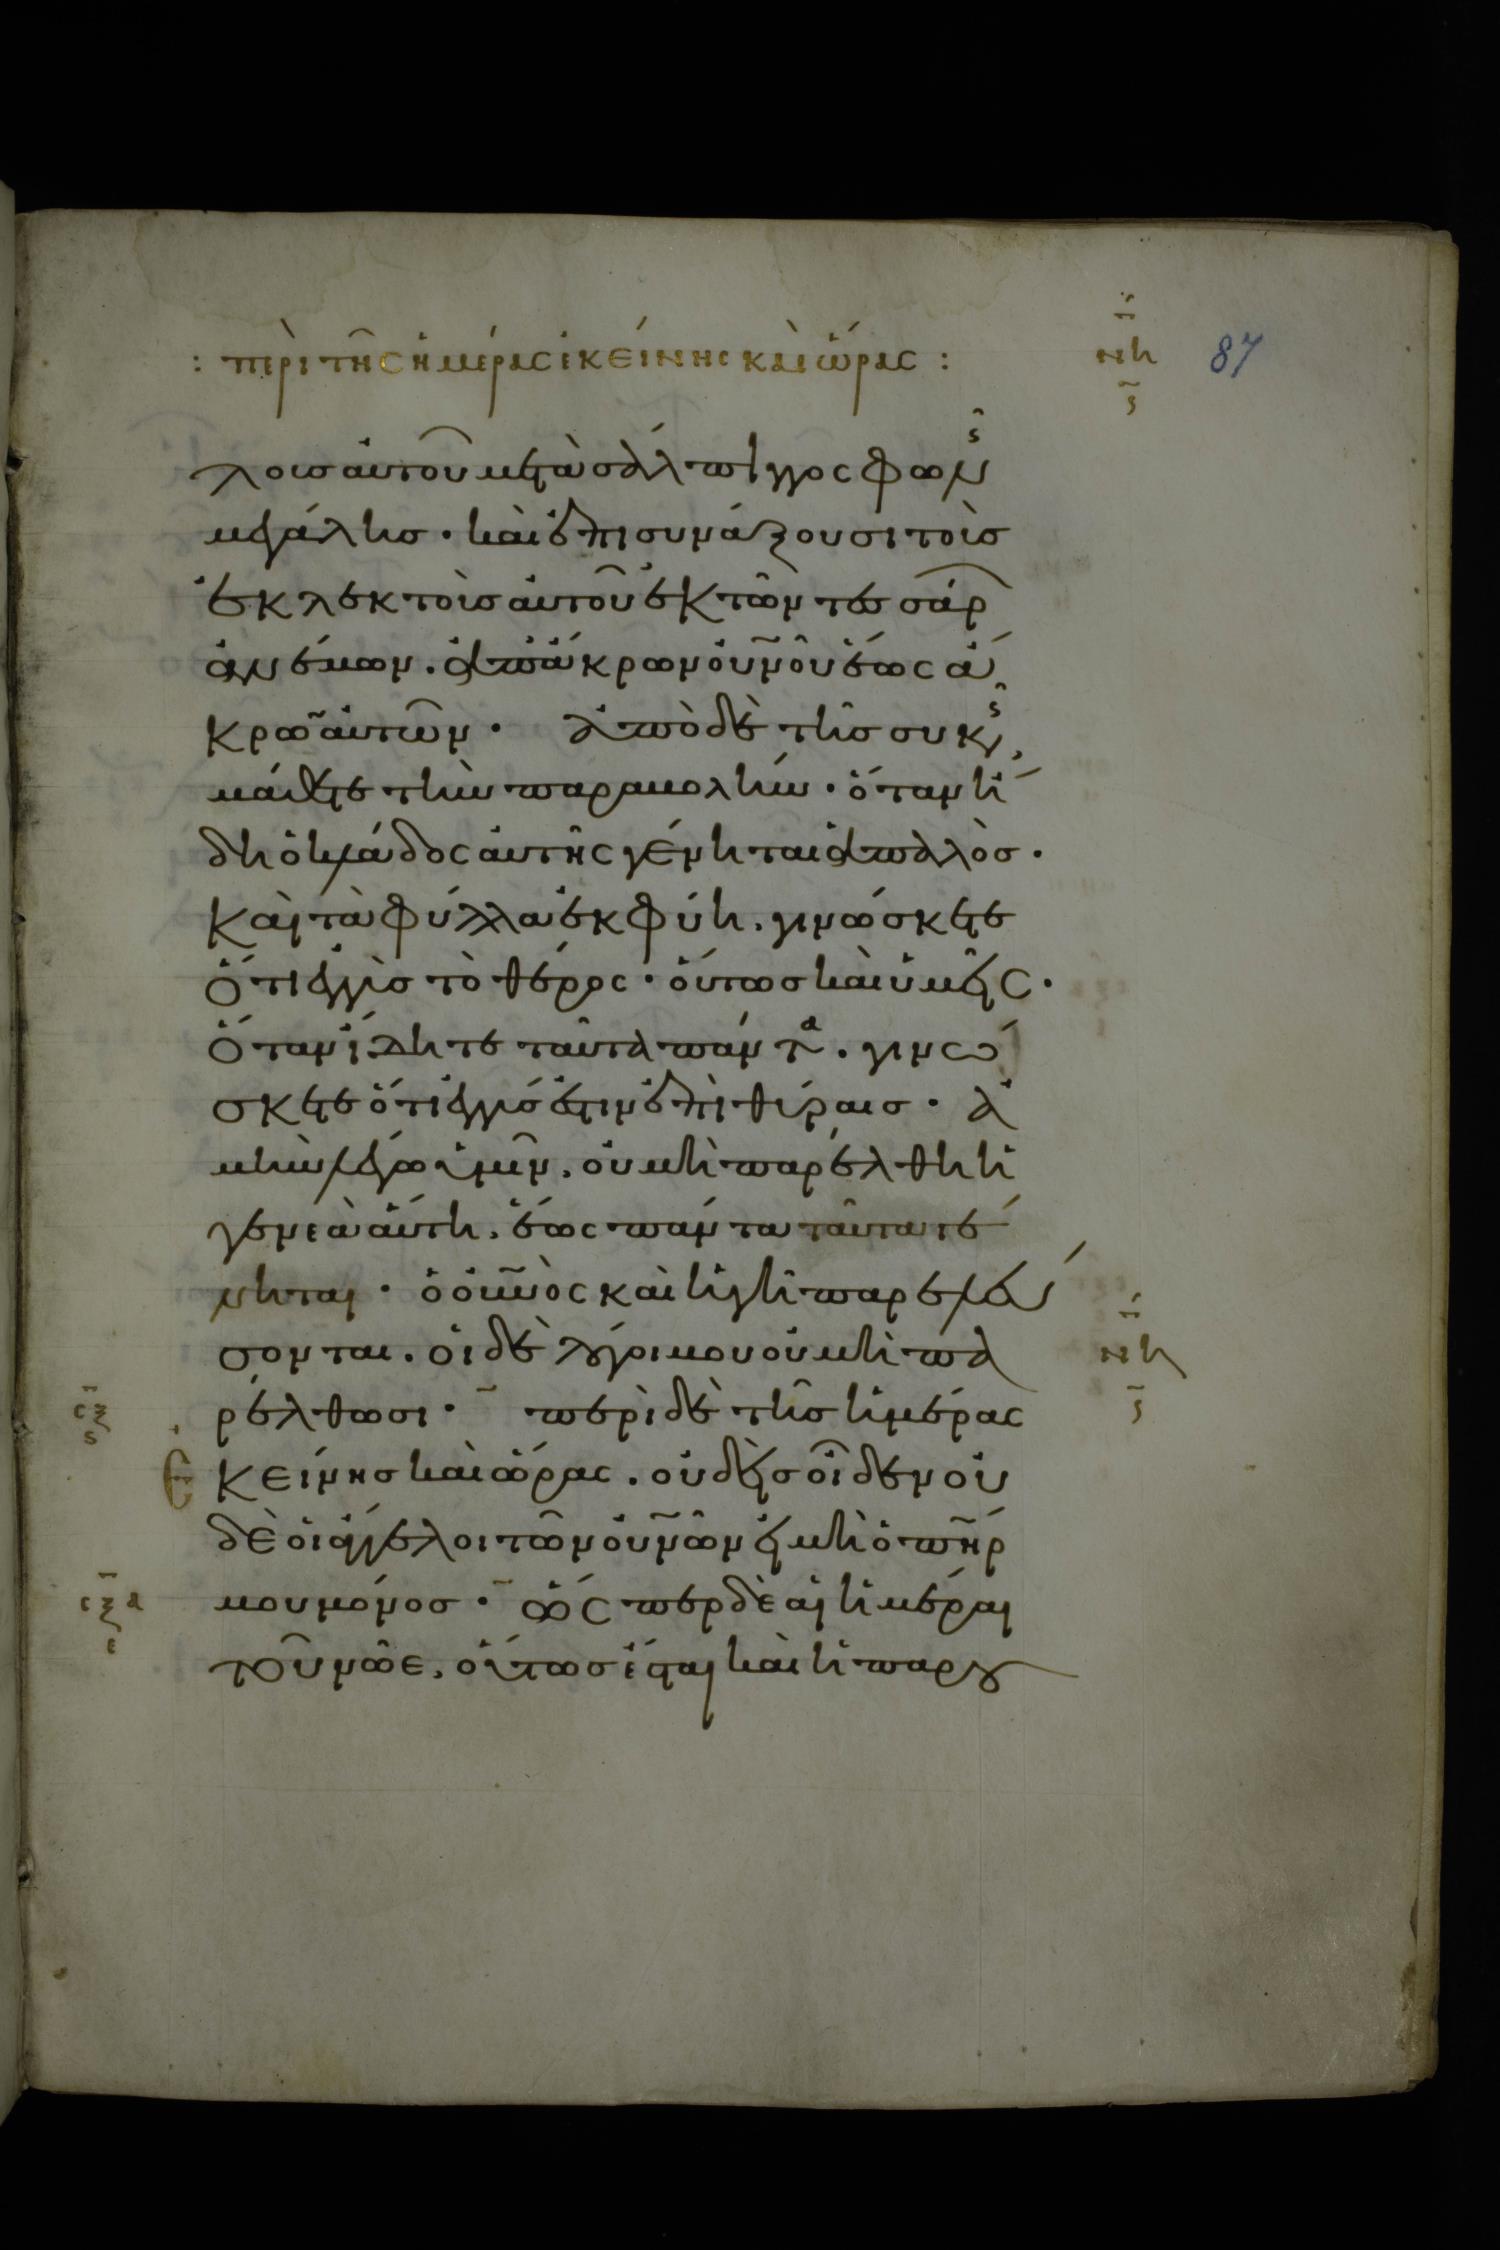 : περὶ τῆς ἡμέρας ἐκείνης καὶ ὥρας :
νη
87
λοισ αὐτοῦ μετὰ σάλπιγγος φων
μεγάλης · καὶ ἐπισυνάξουσι τοὺσ
ἐκλεκτοὺσ αὐτοῦ ἐκ τῶν τεσσάρ
ἀνέμων . ἀπ' ἄκρων οὐνου ἕως ἄ
κρων αὐτῶν · ἀπὸ δὲ τῆσ συκ
μάθετε τὴν παραβολήν · ὅταν ἤ
δη ὁ κλάδος αὐτῆς γένηται ἁπαλὸσ ·
καὶ τὰ φύλλα ἐκφύη . γινώσκετε
ὅτι ἐγγὺσ τὸ θέρος · οὕτωσ καὶ ὑμεῖς ·
ὅταν ἴδητε ταῦτα πάντα . γινώ
σκετε ὅτι ἐγγύσ ἐστιν ἐπὶ θύραισ · ἀ
μὴν λέγω ὑμῖν . οὐ μὴ παρέλθη ἡ
γενεὰ αὕτη . ἕως παντα ταῦτα γέ
νηται · ὁ οὐνὸς καὶ ἡ γῆ παρελεύ
σονται . οἱ δὲ λόγοι μου οὐ μὴ πα
ρέλθωσι · περὶ δὲ τῆσ ἡμέρας
ἐκείνησ καὶ ὥρας . οὐδεὶσ οἶδεν οὐ
δὲ οἱ ἄγγελοι τῶν οὐνῶν εἰ μὴ ὁ πηρ
μου μόνοσ · ὥσπερ δὲ αἱ ἡμέραι
τοῦ νῶε . οὕτωσ ἔσται καὶ ἡ παρου
νη
σξ
ς
σξα
ε